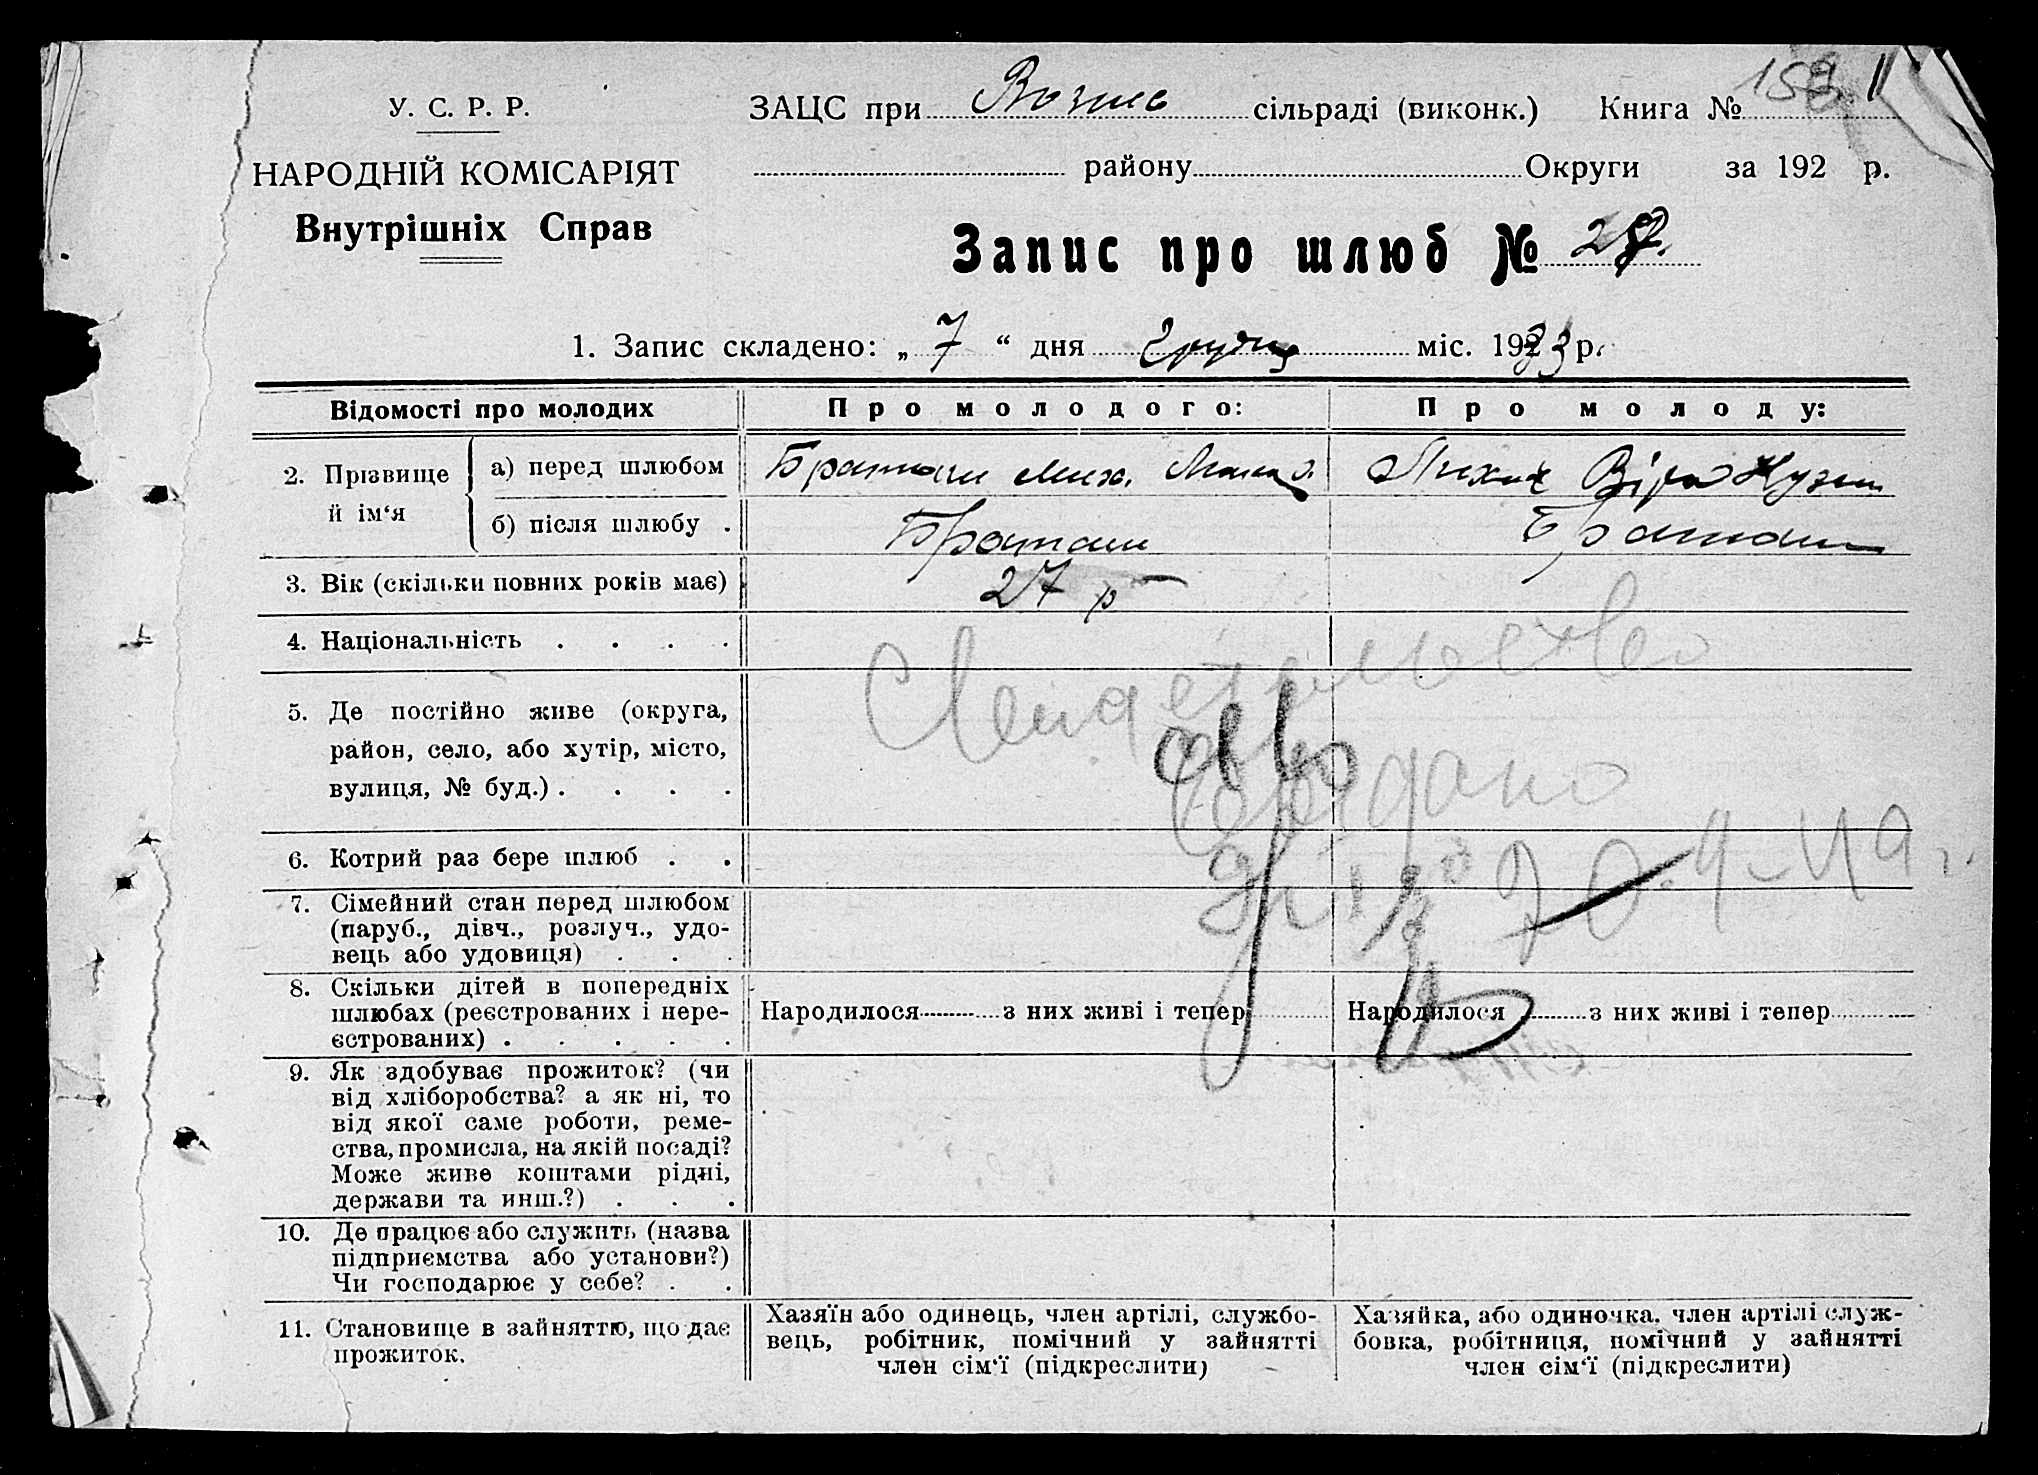 У. С. Р. Р.
НАРОДНІЙ КОМІСАРІЯТ
Внутрішніх Справ
ЗАЦС при сільраді (виконк.) Книга №
району Округи за 192 р.
Запис про шлюб №
1. Запис складено: „ 7 “ дня грудня міс. 192 3 р.
Відомості про молодих
Про молодого:
Про молоду:
2. Прізвище й ім‘я
а) перед шлюбом
Браташ Мих.
Віра Кузьм
б) після шлюбу .
Браташ
Браташ
3. Вік (скільки повних років має)
27 р
4. Національність . . . .
Свидетельство
5. Де постійно живе (округа,
район, село, або хутір, місто,
вулиця, № буд.) . . . .
6. Котрий раз бере шлюб . .
7. Сімейний стан перед шлюбом
(паруб., дівч., розлуч., удо-
вець або удовиця) . . .
8. Скільки дітей в попередніх
шлюбах (реєстрованих і нере-
єстрованих) . . . . .
Народилося з них живі і тепер
Народилося з них живі і тепер
9. Як здобуває прожиток? (чи
від хліборобства? а як ні, то
від якої саме роботи, реме-
ства, промисла, на якій посаді?
Може живе коштами рідні,
держави та инш.?) . . .
10. Де працює або служить (назва
підприємства або установи?)
Чи господарює у себе? . .
11. Становище в зайняттю, що дає
прожиток.
Хазяїн або одинець, член артілі, службо-
вець, робітник, помічний у зайнятті
член сім‘ї (підкреслити)
Хазяйка, або одиночка, член артілі служ-
бовка, робітниця, помічний у зайнятті
член сім‘ї (підкреслити)